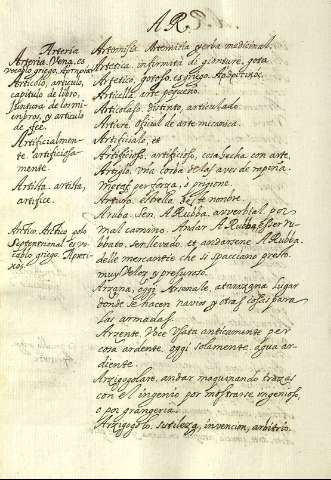 AR.
Arteria
Arteria. Vena, es
vocablo griego.
Articolo, articulo,
capitulo de libro,
y articulo
de fee.
Artificialmen-
te. artificiosa-
mente.
Artista. artista,
artifice.
Artico. Artico polo
Septentrional. es vo-
cablo griego.
Artemisia. Artemisia yerba medicinal.
Artetica. infirmità di gionture, gota
Artetico, gotoso, es griego.
Articella. arte pequeña.
Articolato. distinto, articulado.
Artiere. oficial de arte mecanica.
Artificiale, et
Artificioso, artificioso, cosa hecha con arte.
Artiglio. uña corba de las aves de rapiña.
metaf. per forza, o prigione.
Arturo. estrella deste nombre.
Aruba. Sen. A Rubba. averbial. por
mal camino. Andar A Rubba, esser ru-
bbato, sen llevado. et andarsene A Rubba.
delle mercantie che si spacciano presto.
muy veloz y presuroso.
Arzana, oggi Arsenale, ataraçana lugar
donde se hacen navios y otras cosas para
las armadas.
Arzente. Voce usata anticamente per
cosa ardente. oggi solamente. agua ar-
diente.
Arzigogolare. andar maquinando trazas
con el ingenio por mostrarse ingenioso,
o por grangeria.
Arzigogolo. sutileza, invencion, arbitrio.